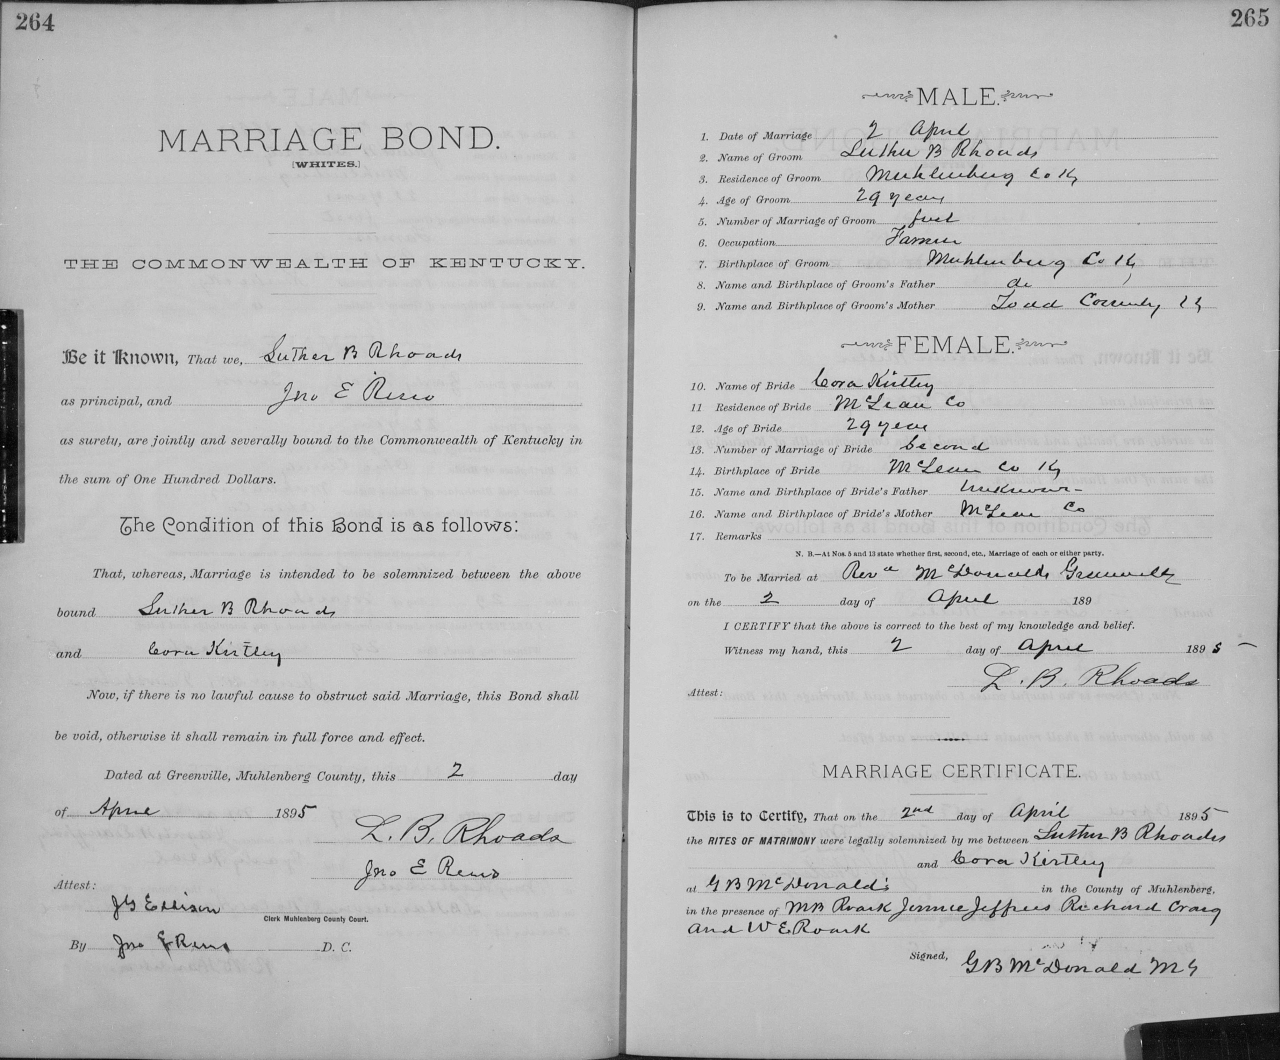 264
MARRIAGE BOND.
[WHITES.]
THE COMMONWEALTH OF KENTUCKY.
Be it Known, That we, Luther B Rhoads
as principal, and Jno E Reno
as surety, are jointly and severally bound to the Commonwealth of Kentucky in
the sum of One Hundred Dollars.
The Condition of this Bond is as follows:
That, whereas, Marriage is intended to be solemnized between the above
bound Luther B Rhoads
and Cora Kirtley
Now, if there is no lawful cause to obstruct said Marriage, this Bond shall
be void, otherwise it shall remain in full force and effect.
Dated at Greenville, Muhlenberg County, this 2 day
of April 1895
L. B. Rhoads
Jno E Reno
Attest:
J G Ellison
Clerk Muhlenberg County Court.
By Jno E Reno D. C.
265
MALE.
1. Date of Marriage 2 April
2. Name of Groom Luther B Rhoads
3. Residence of Groom Muhlenburg Co Ky
4. Age of Groom 29 years
5. Number of Marriage of Groom first
6. Occupation Farmer
7. Birthplace of Groom Muhlenburg Co Ky
8. Name and Birthplace of Groom's Father do
9. Name and Birthplace of Groom's Mother Todd County Ky
FEMALE.
10. Name of Bride Cora Kirtley
11 Residence of Bride McLean Co
12. Age of Bride 29 year
13. Number of Marriage of Bride Second
14. Birthplace of Bride McLean Co Ky
15. Name and Birthplace of Bride's Father Unknown
16. Name and Birthplace of Bride's Mother McLean Co
17. Remarks
N. B.—At Nos. 5 and 13 state whether first, second, etc., Marriage of each or either party.
To be Married at Revd McDonalds Greenville
on the 2 day of April 189
I CERTIFY that the above is correct to the best of my knowledge and belief.
Witness my hand, this 2 day of April 1895
L. B. Rhoads
Attest:
MARRIAGE CERTIFICATE.
This is to Certify, That on the 2nd day of April 1895
the RITES OF MATRIMONY were legally solemnized by me between Luther B Rhoads
and Cora Kirtley
at G B McDonald's in the County of Muhlenberg,
in the presence of M B Roark Jennie Jeffries Richard Craig
and W E Roark
Signed, G B McDonald M G